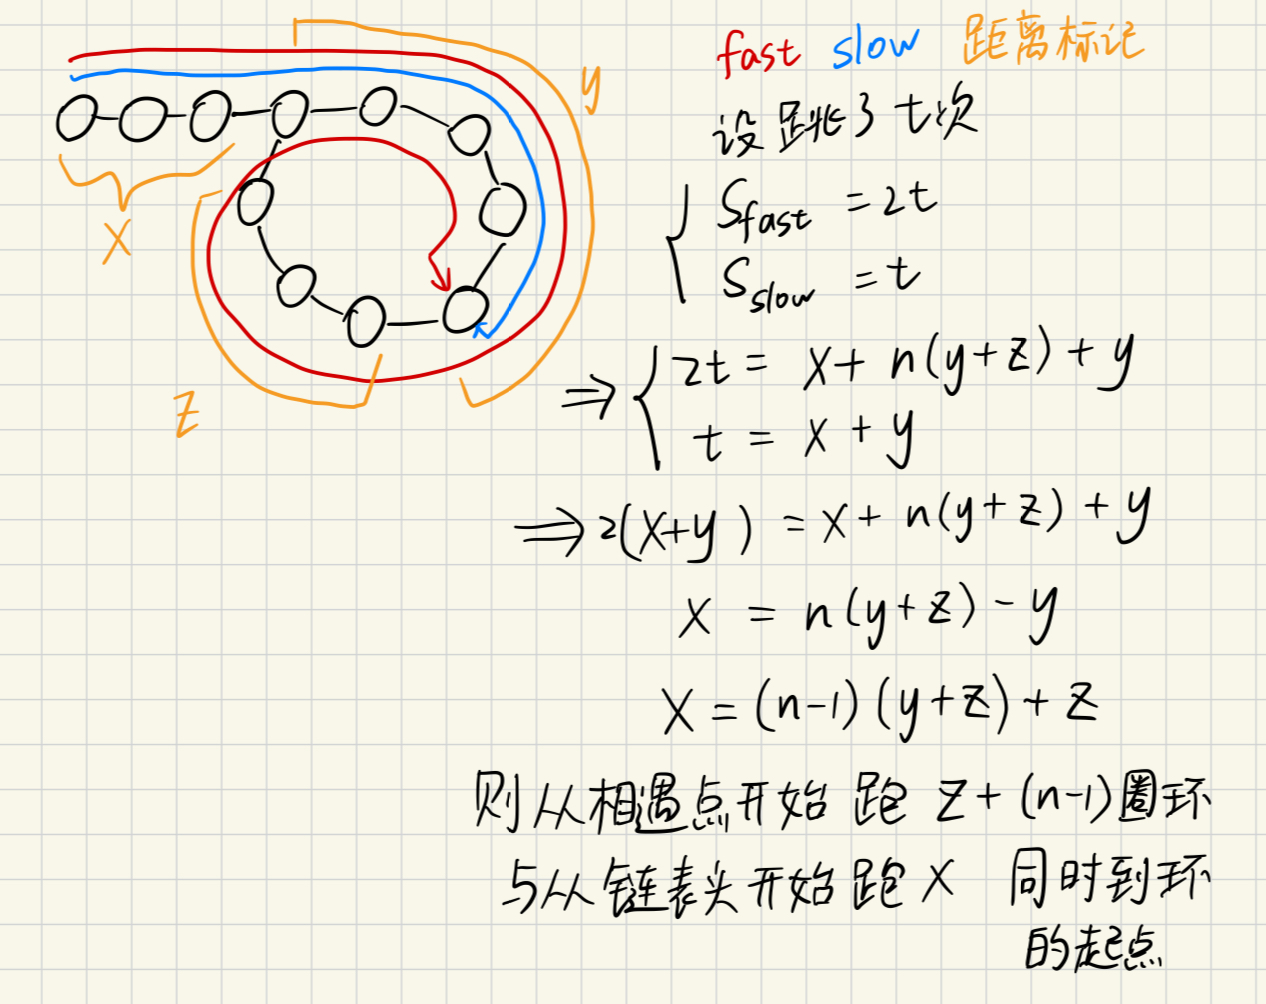 fast slow 距离标记
y
设跳了 t次
S_fast = 2t
X
S_slow = t
Z
⇒ 2t = x + n(y+z) + y
t = x + y
⇒ 2(x+y) = x + n(y+z) + y
x = n(y+z) - y
x = (n-1)(y+z) + z
则从相遇点开始 跑 z + (n-1)圈环
与从链表头开始跑 x 同时到环
的起点